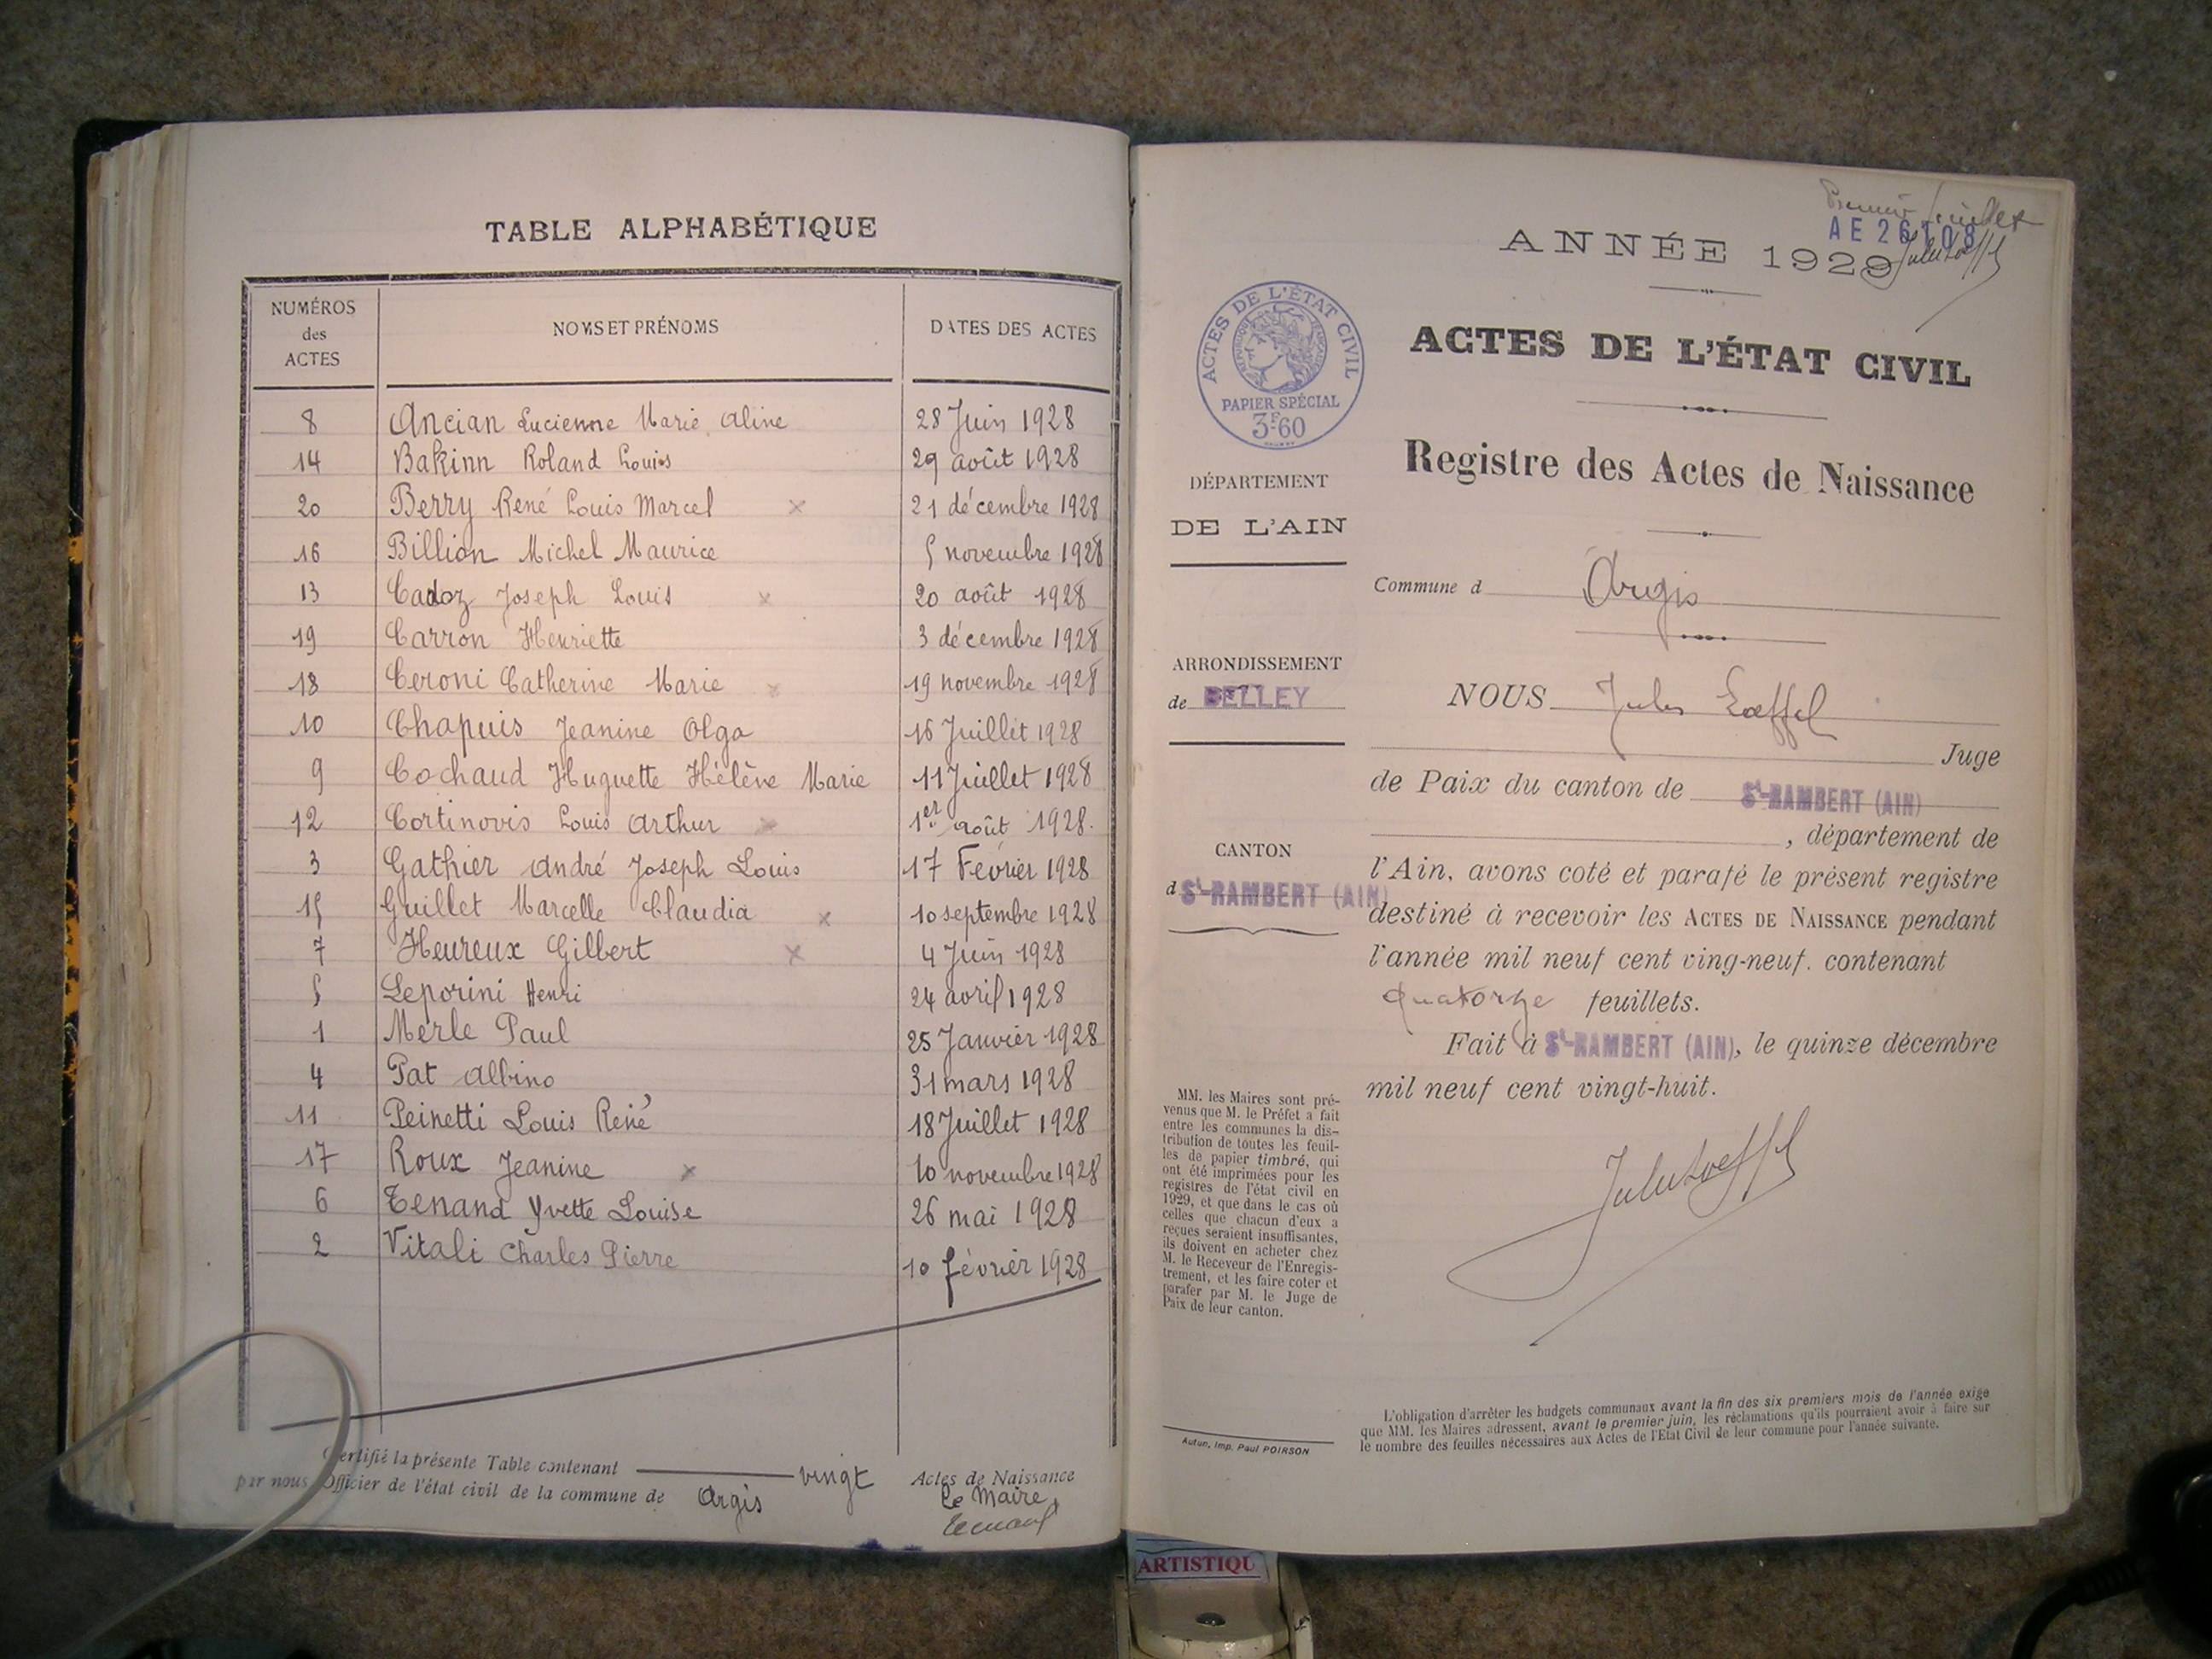 TABLE ALPHABÉTIQUE
NUMÉROS des ACTES NOMS ET PRÉNOMS DATES DES ACTES
8 Ancian Lucienne Marie Aline 28 Juin 1928
14 Bakinn Roland Louis 29 août 1928
20 Berry René Louis Marcel x 21 décembre 1928
16 Billion Michel Maurice 5 novembre 1928
13 Cadoz Joseph Louis x 20 août 1928
19 Carron Henriette 3 décembre 1928
18 Ceroni Catherine Marie x 19 novembre 1928
10 Chapuis Jeanine Olga 16 Juillet 1928
9 Cochaud Huguette Hélène Marie 11 Juillet 1928
12 Cortinovis Louis Arthur x 1er août 1928.
3 Gathier André Joseph Louis 17 Février 1928
15 Guillet Marcelle Claudia x 10 septembre 1928
7 Heureux Gilbert x 4 Juin 1928
5 Leporini Henri 24 avril 1928
1 Merle Paul 25 Janvier 1928
4 Pat Albino 31 mars 1928
11 Peinetti Louis René 18 Juillet 1928
17 Roux Jeanine x 10 novembre 1928
6 Tenand Yvette Louise 26 mai 1928
2 Vitali Charles Pierre 10 février 1928
Certifié la présente Table contenant vingt Actes de Naissance
par nous Officier de l'état civil de la commune de Argis Le Maire,
Tenand
Premier feuillet
AE 26108
Jules Loeffel
ANNÉE 1929
ACTES DE L'ÉTAT CIVIL
RÉPUBLIQUE FRANÇAISE
PAPIER SPÉCIAL
3F60
ACTES DE L'ÉTAT CIVIL
Registre des Actes de Naissance
DÉPARTEMENT
DE L'AIN
Commune d Argis
ARRONDISSEMENT
de BELLEY
CANTON
d St-RAMBERT (AIN)
NOUS Jules Loeffel
Juge
de Paix du canton de St-RAMBERT (AIN)
, département de
l'Ain, avons coté et parafé le présent registre
destiné à recevoir les ACTES DE NAISSANCE pendant
l'année mil neuf cent ving-neuf. contenant
quatorze feuillets.
Fait à St-RAMBERT (AIN), le quinze décembre
mil neuf cent vingt-huit.
Jules Loeffel
MM. les Maires sont pré-
venus que M. le Préfet a fait
entre les communes la dis-
tribution de toutes les feuil-
les de papier timbré, qui
ont été imprimées pour les
registres de l'état civil en
1929, et que dans le cas où
celles que chacun d'eux a
reçues seraient insuffisantes,
ils doivent en acheter chez
M. le Receveur de l'Enregis-
trement, et les faire coter et
parafer par M. le Juge de
Paix de leur canton.
Autun, Imp. Paul POIRSON
L'obligation d'arrêter les budgets communaux avant la fin des six premiers mois de l'année exige
que MM. les Maires adressent, avant le premier juin, les réclamations qu'ils pourraient avoir à faire sur
le nombre des feuilles nécessaires aux Actes de l'Etat Civil de leur commune pour l'année suivante.
ARTISTIQU